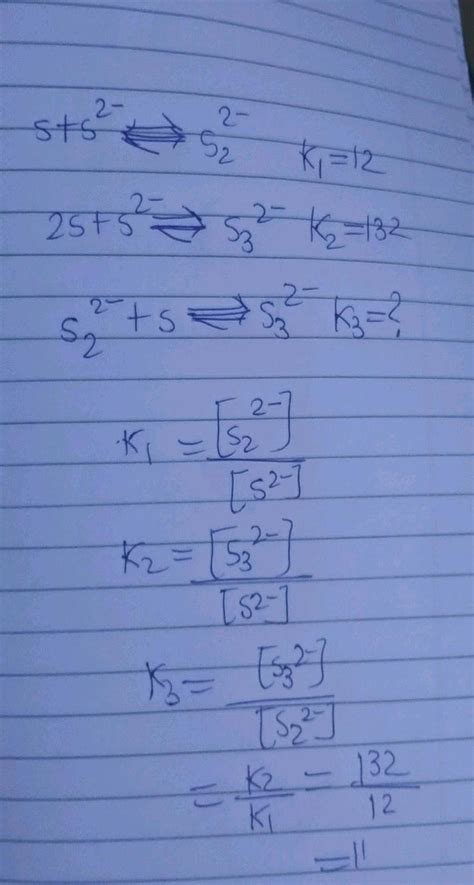 s + s²⁻ ⇌ s₂²⁻ K₁ = 12
2s + s²⁻ ⇌ s₃²⁻ K₂ = 132
s₂²⁻ + s ⇌ s₃²⁻ K₃ = ?
K₁ = [s₂²⁻] / [s²⁻]
K₂ = [s₃²⁻] / [s²⁻]
K₃ = [s₃²⁻] / [s₂²⁻]
= K₂ / K₁ = 132 / 12
= 11